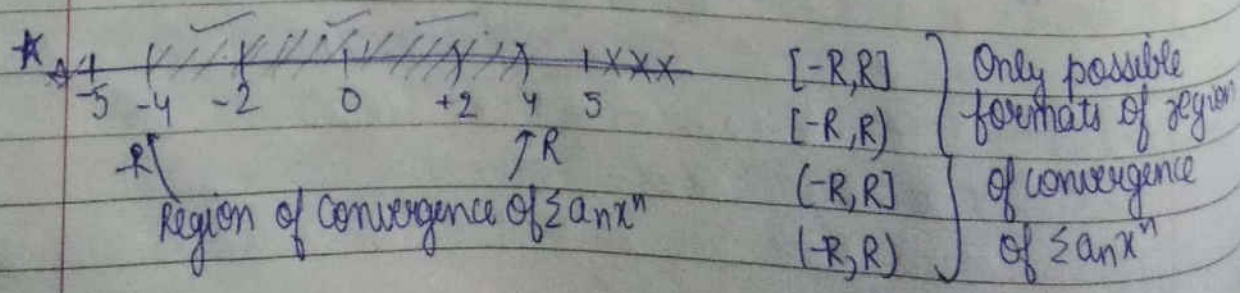 -5 -4 -2 0 +2 4 5
-R R
Region of convergence of Σanxⁿ
[-R,R]
[-R,R)
(-R,R]
(-R,R)
Only possible
formats of region
of convergence
of Σanxⁿ